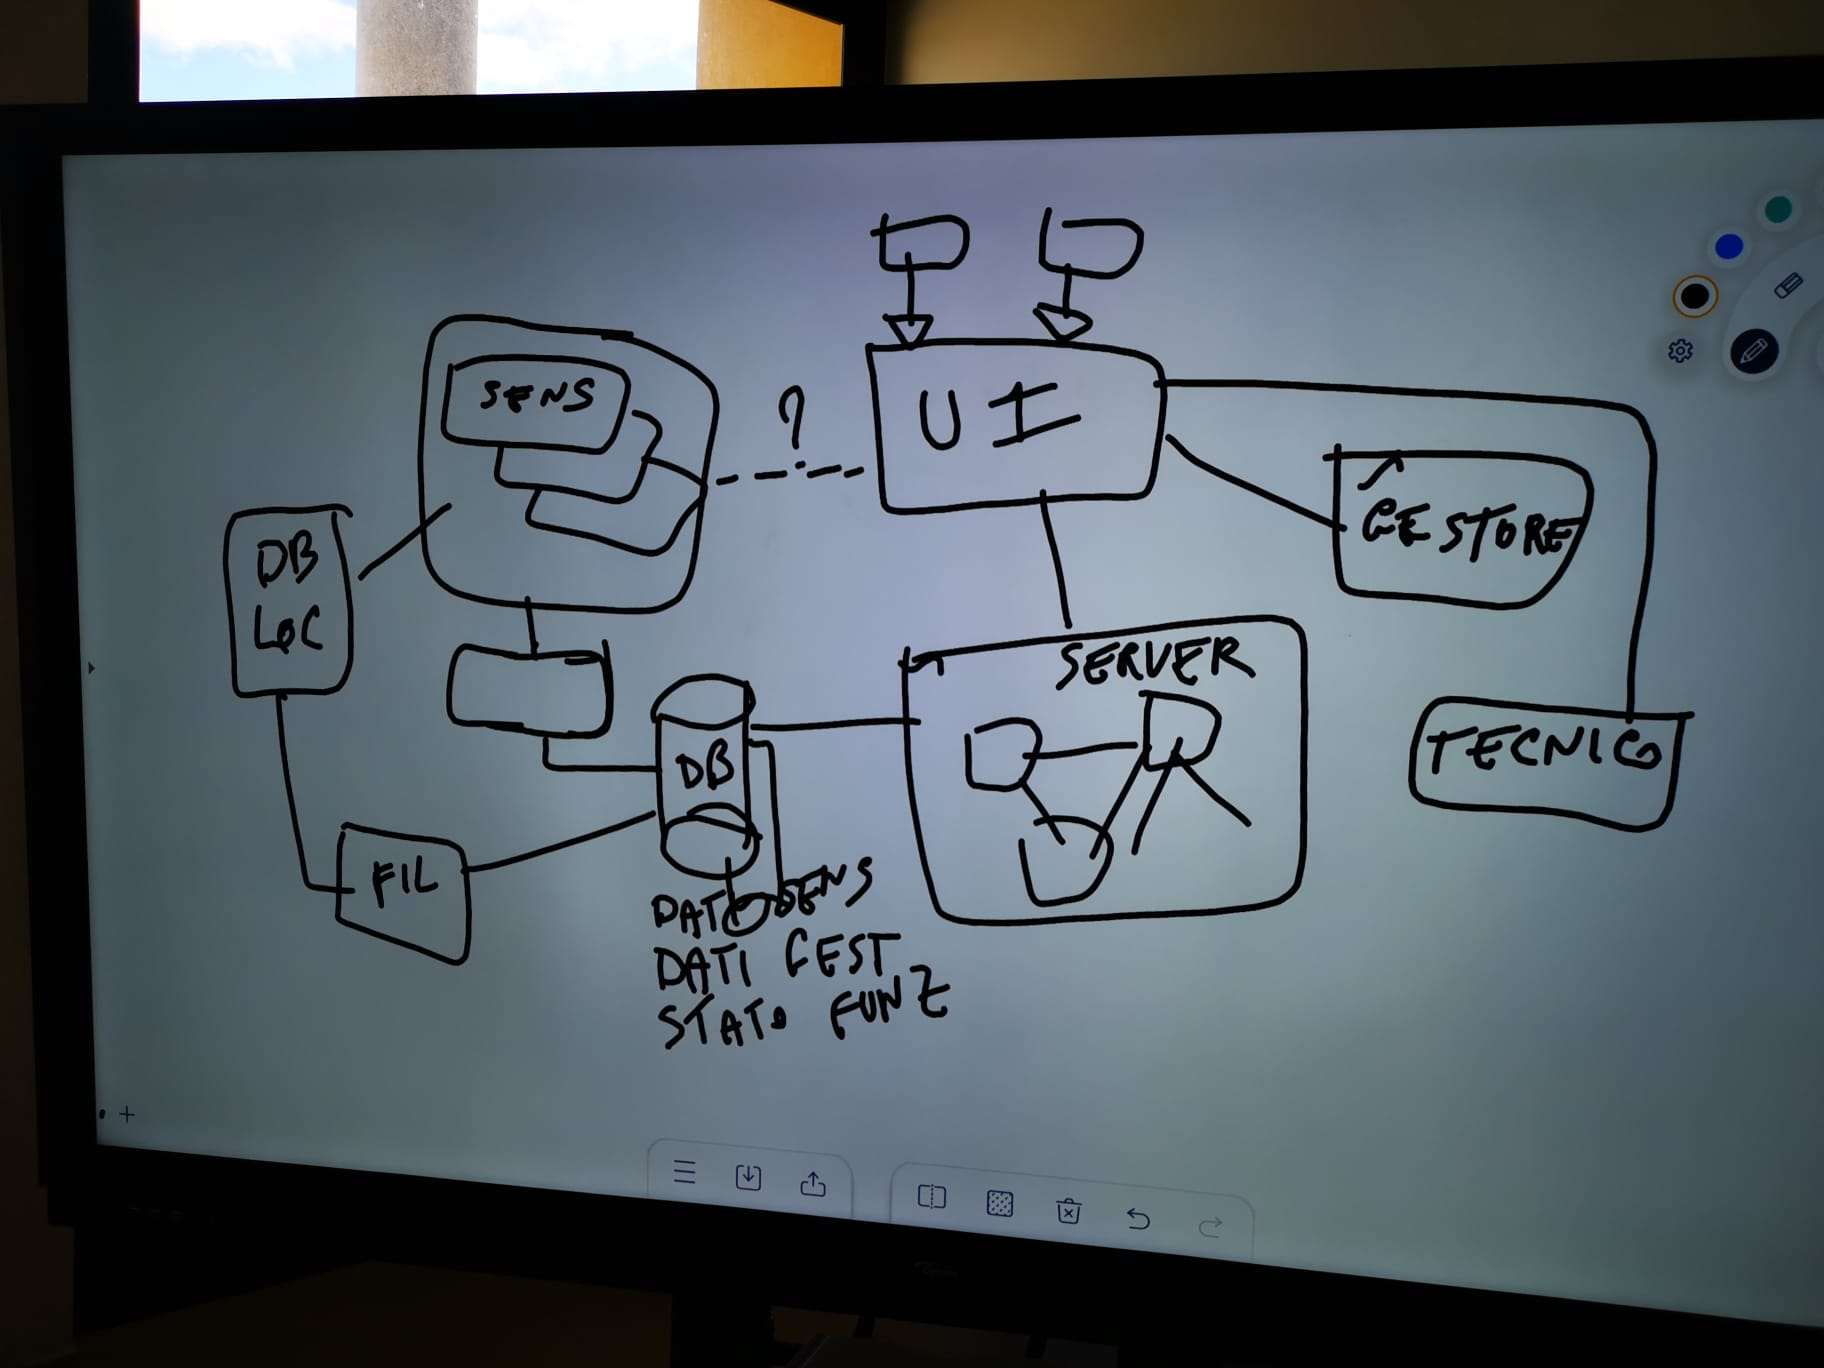 SENS
?
UI
GESTORE
DB
LOC
SERVER
TECNICO
DB
FIL
DATI SENS
DATI GEST
STATO FUNZ